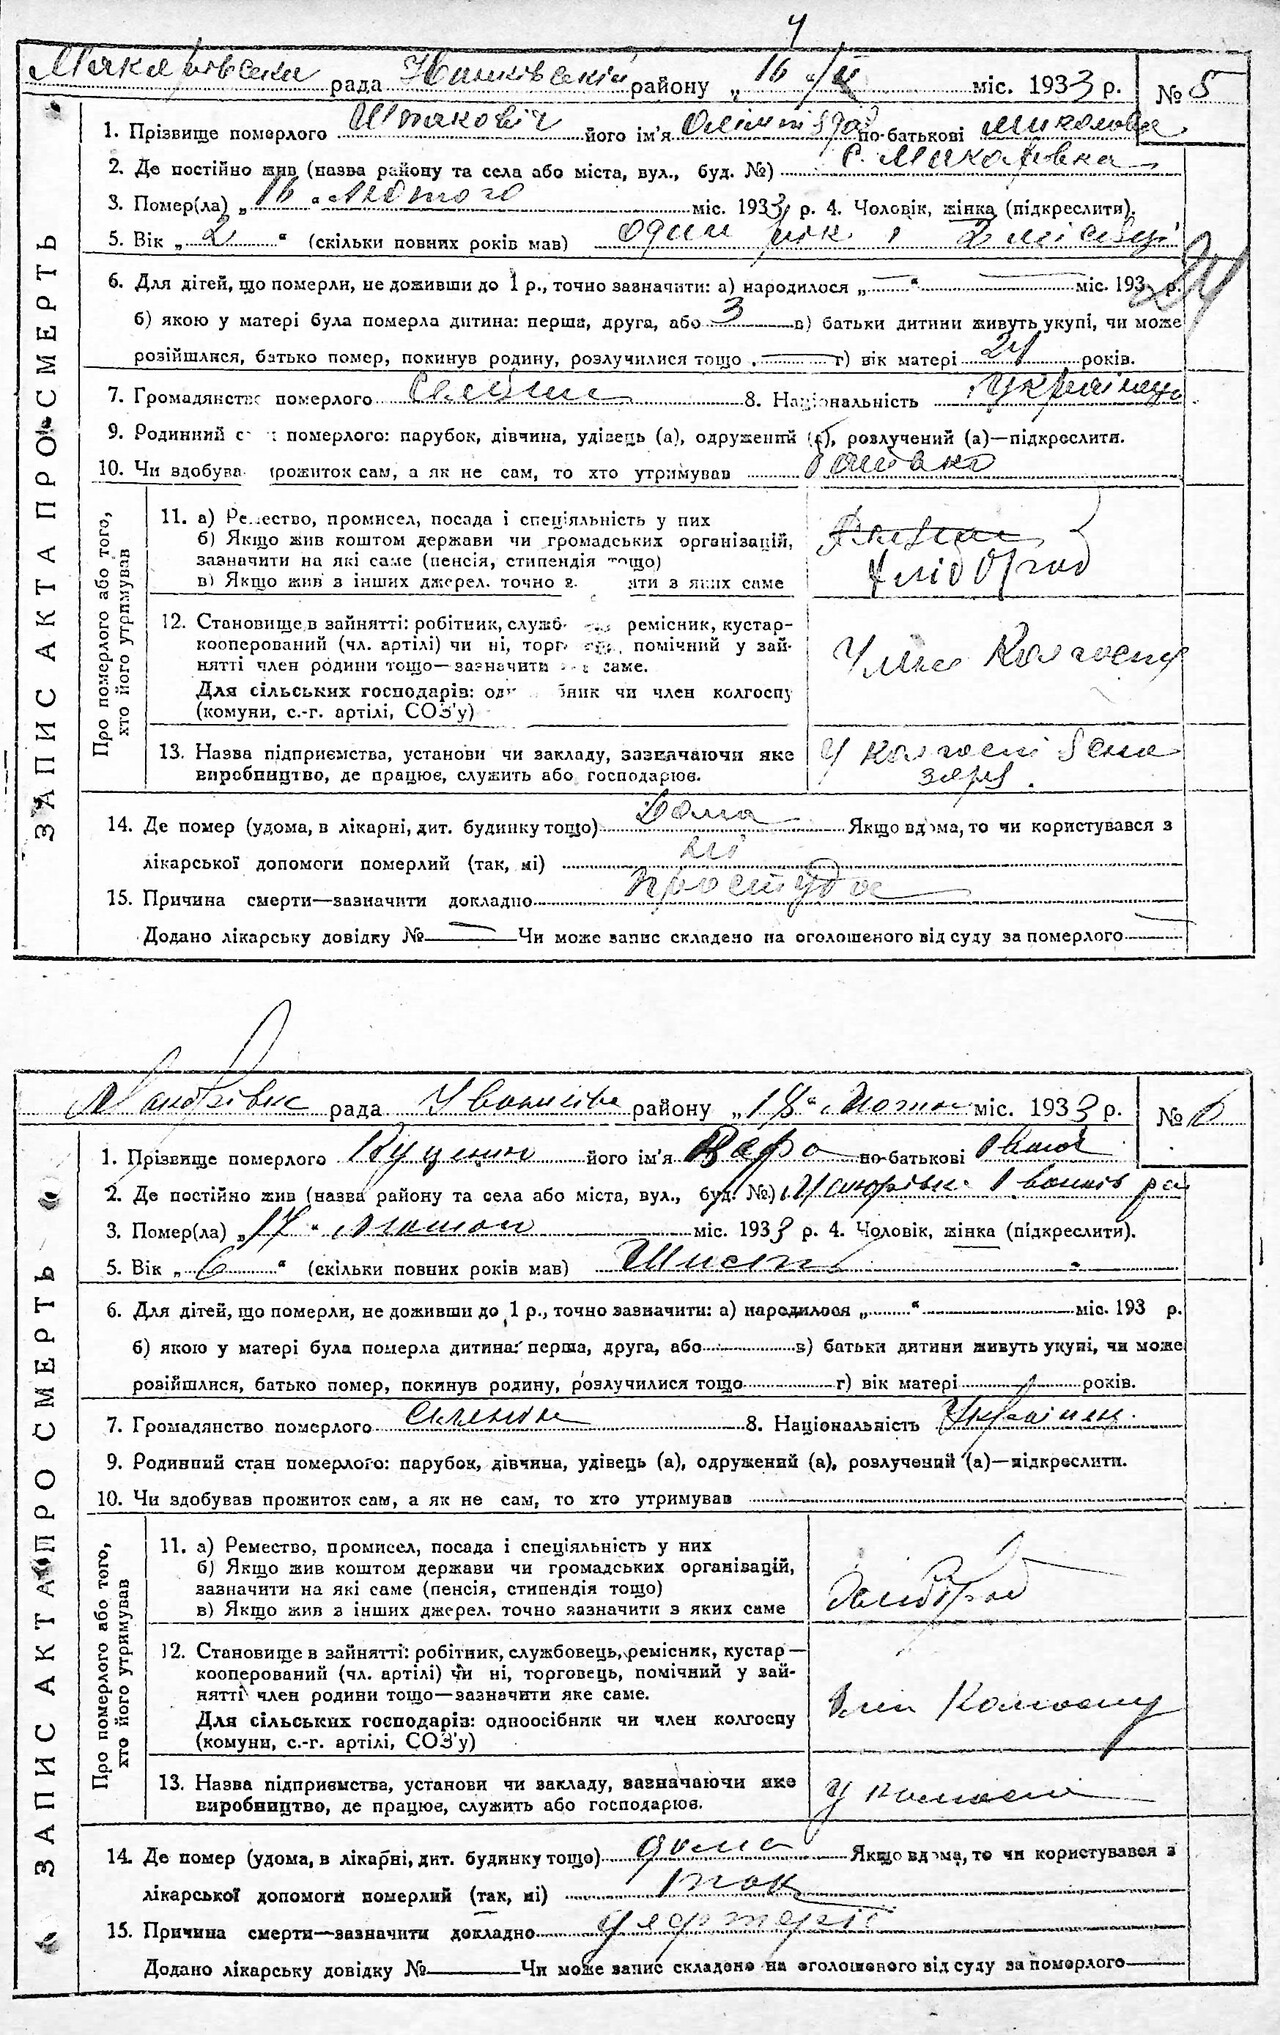 4
рада районy „ 16 " /II міс. 1933 р. № 5
ЗАПИС АКТА ПРО СМЕРТЬ
1. Прізвище померлого його ім'я по-батькові
2. Де постійно жив (назва району та села або міста, вул., буд. №) с. Макарівка
3. Помер(ла) „ 16 " лютого міс. 1933 р. 4. Чоловік, жінка (підкреслити).
5. Вік „ 2 " (скільки повних років мав) один рік і 2 місяці
24
6. Для дітей, що померли, не доживши до 1 р., точно зазначити: а) народилося „ — " — міс. 193 р.
б) якою у матері була померла дитина: перша, друга, або 3 в) батьки дитини живуть укупі, чи може
розійшлися, батько помер, покинув родину, розлучилися тощо . — г) вік матері 24 років.
7. Громадянство померлого 8. Національність
9. Родинний померлого: парубок, дівчина, удівець (а), одружений (а), розлучений (а)—підкреслити.
10. Чи здобува прожиток сам, а як не сам, то хто утримував батько
Про померлого або того, хто його утримував
11. а) Ремество, промисел, посада і спеціяльність у них
б) Якщо жив коштом держави чи громадських організацій,
зазначити на які саме (пенсія, стипендія тощо)
в) Якщо жив з інших джерел. точно з яких саме
хлібороб
12. Становище в зайнятті: робітник, служб ремісник, кустар-
кооперований (чл. артілі) чи ні, торг помічний у зай-
нятті член родини тощо—зазначити саме.
Для сільських господарів: од бник чи член колгоспу
(комуни, с.-г. артілі, СОЗ'у)
Член Колгоспу
13. Назва підприємства, установи чи закладу, зазначаючи яке
виробництво, де працює, служить або господарює.
У колгоспі
14. Де помер (удома, в лікарні, дит. будинку тощо) Дома Якщо вдома, то чи користувався з
лікарської допомоги померлий (так, ні) ні
15. Причина смерти—зазначити докладно простуда
Додано лікарську довідку № — Чи може запис складено на оголошеного від суду за померлого —
рада району „ 18 " міс. 1933 р. № 6
ЗАПИС АКТА ПРО СМЕРТЬ
1. Прізвище померлого його ім'я по-батькові
2. Де постійно жив (назва району та села або міста, вул., буд. №)
3. Помер(ла) „ 17 " міс. 1933 р. 4. Чоловік, жінка (підкреслити).
5. Вік „ 6 " (скільки повних років мав) Шисть
6. Для дітей, що померли, не доживши до 1 р., точно зазначити: а) народилося „ " міс. 193 р.
б) якою у матері була померла дитина: перша, друга, або в) батьки дитини живуть укупі, чи може
розійшлися, батько помер, покинув родину, розлучилися тощо г) вік матері років.
7. Громадянство померлого 8. Національність
9. Родинний стан померлого: парубок, дівчина, удівець (а), одружений (а), розлучений (а)—підкреслити.
10. Чи здобував прожиток сам, а як не сам, то хто утримував
Про померлого або того, хто його утримував
11. а) Ремество, промисел, посада і спеціяльність у них
б) Якщо жив коштом держави чи громадських організацій,
зазначити на які саме (пенсія, стипендія тощо)
в) Якщо жив з інших джерел. точно зазначити з яких саме
12. Становище в зайнятті: робітник, службовець, ремісник, кустар—
кооперований (чл. артілі) чи ні, торговець, помічний у зай-
нятті член родини тощо—зазначити яке саме.
Для сільських господарів: одноосібник чи член колгоспу
(комуни, с.-г. артілі, СОЗ'у)
член Колгоспу
13. Назва підприємства, установи чи закладу, зазначаючи яке
виробництво, де працює, служить або господарює.
У колгоспі
14. Де помер (удома, в лікарні, дит. будинку тощо) дома Якщо вдома, то чи користувався з
лікарської допомоги померлий (так, ні) так
15. Причина смерти—зазначити докладно
Додано лікарську довідку № — Чи може запис складено на оголошеного від суду за померлого —